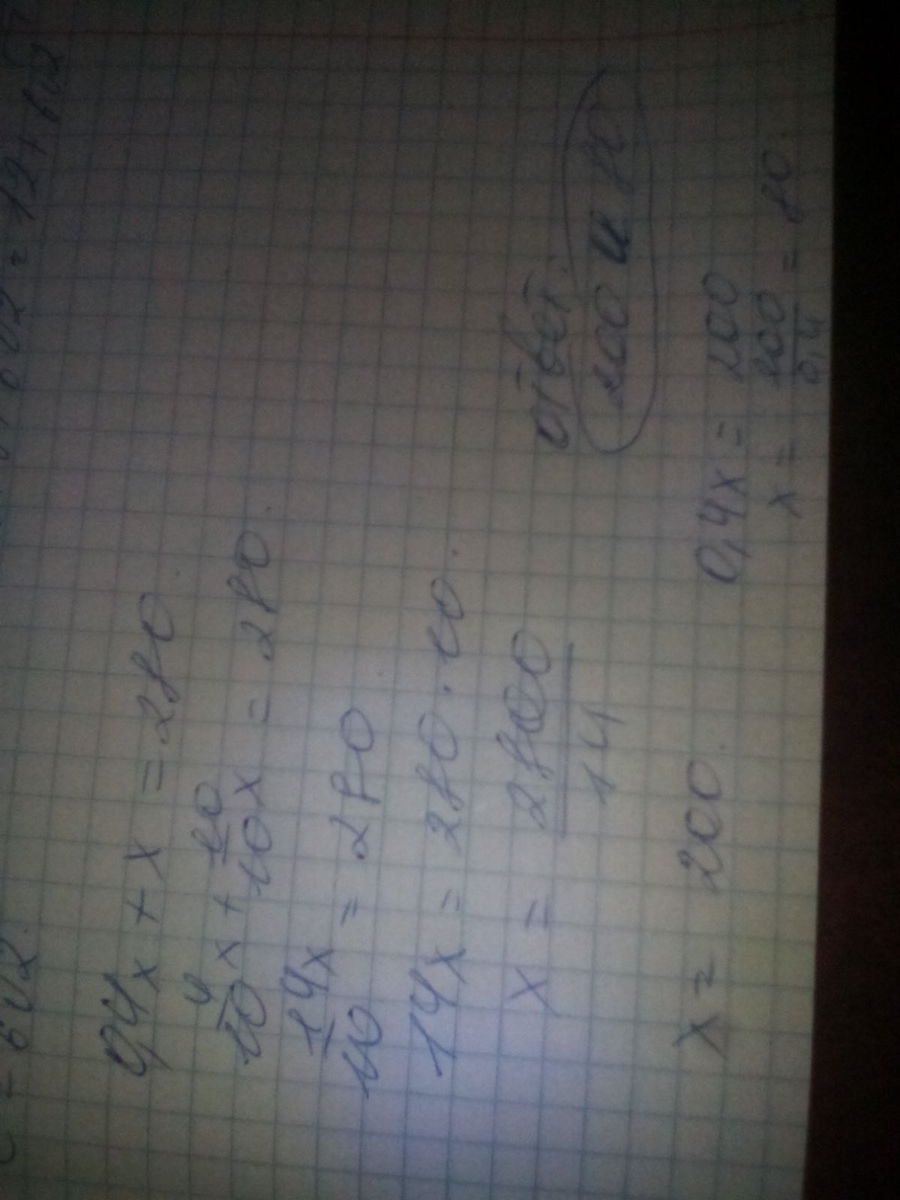 0,4x + x = 280.
4/10 x + 10/10 x = 280.
14x/10 = 280
14x = 280 · 10.
x = 2800/14
x = 200.
ответ:
200 и 80
0,4x = 200
x = 200/0,4 = 80.